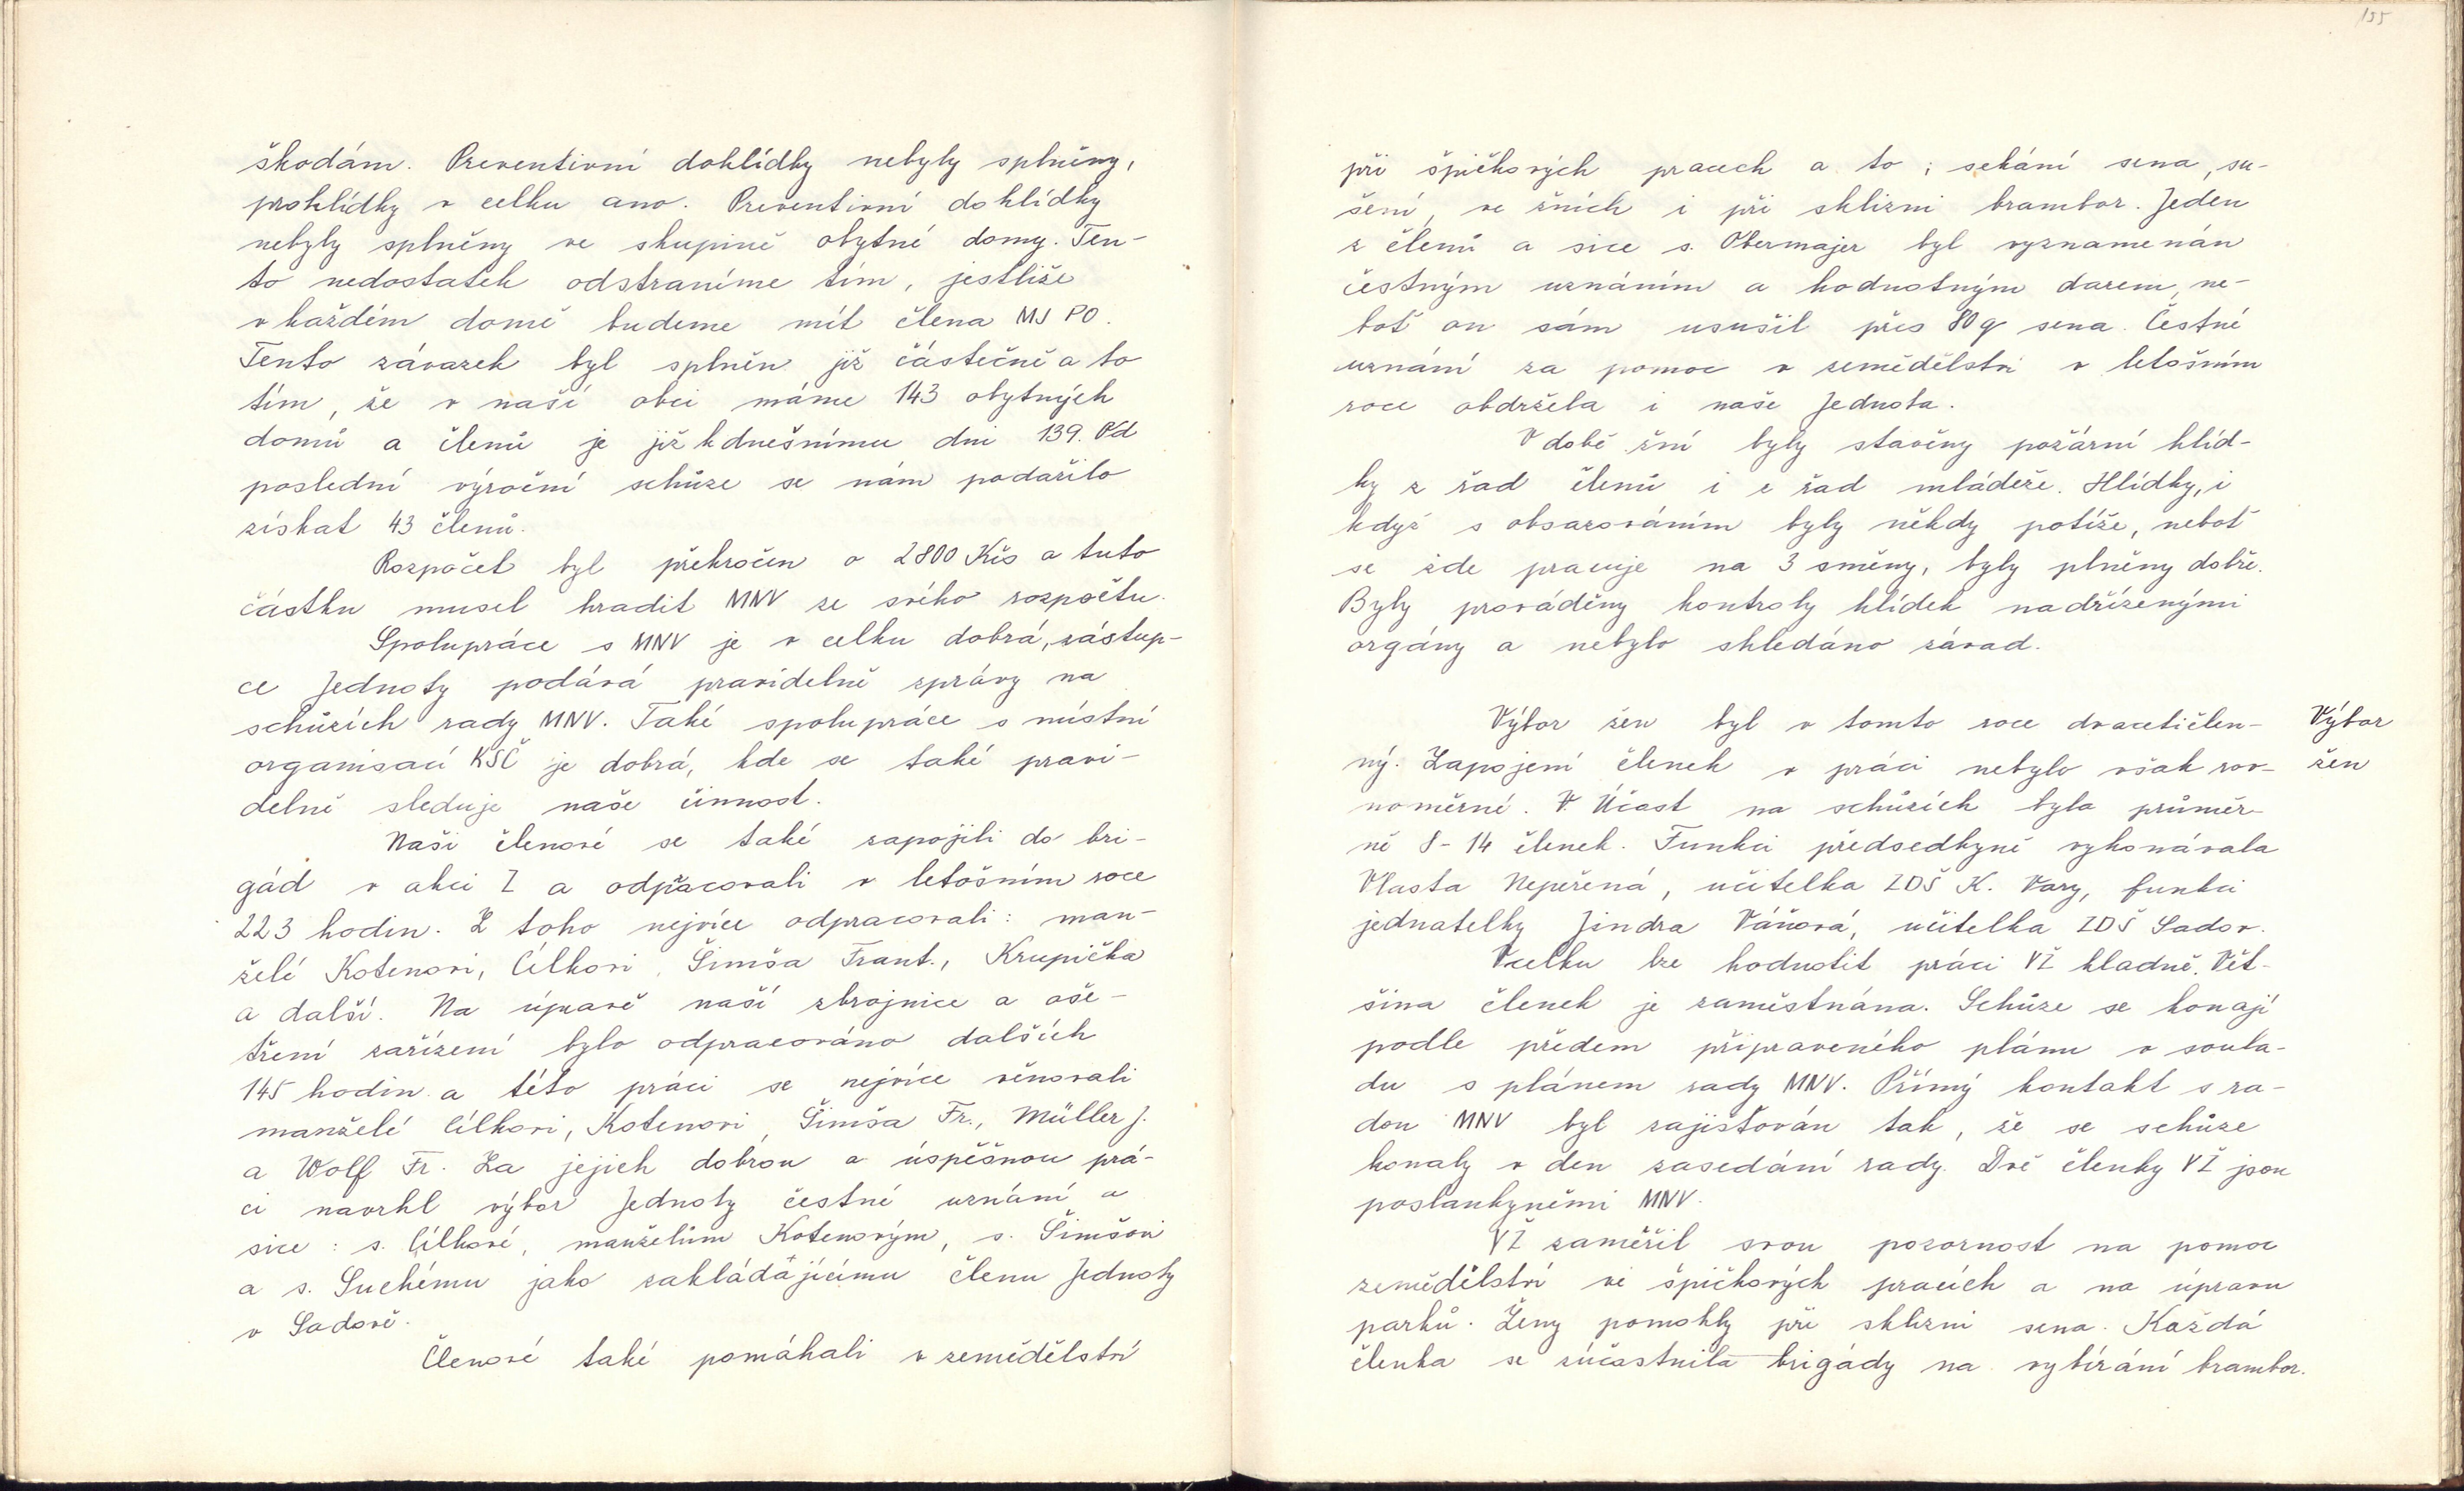 škodám. Preventivní dohlídky nebyly splněny,
prohlídky v celku ano. Preventivní dohlídky
nebyly splněny ve skupině obytné domy. Ten-
to nedostatek odstraníme tím, jestliže
v každém domě budeme mít člena MJ PO.
Tento závazek byl splněn již částečně a to
tím, že v naší obci máme 143 obytných
domů a členů je již k dnešnímu dni 139. Od
poslední výroční schůze se nám podařilo
získat 43 členů.
Rozpočet byl překročen o 2800 Kčs a tuto
částku musel hradit MNV ze svého rozpočtu.
Spolupráce s MNV je v celku dobrá, zástup-
ce Jednoty podává pravidelně zprávy na
schůzích rady MNV. Také spolupráce s místní
organisací KSČ je dobrá, kde se také pravi-
delně sleduje naše činnost.
Naši členové se také zapojili do bri-
gád v akci Z a odpracovali v letošním roce
223 hodin. Z toho nejvíce odpracovali: man-
želé Kotenovi, Cílkovi, Šimša Frant., Krupička
a další. Na úpravě naší zbrojnice a oše-
tření zařízení bylo odpracováno dalších
145 hodin a této práci se nejvíce věnovali
manželé Cílkovi, Kotenovi, Šimša Fr., Müller J.
a Wolf Fr. Za jejich dobrou a úspěšnou prá-
ci navrhl výbor Jednoty čestné uznání a
sice: s. Cílkové, manželům Kotenovým, s. Šimšovi
a s. Suchému jako zakládajícímu členu Jednoty
v Sadově.
Členové také pomáhali v zemědělství
155
při špičkových pracech a to; sekání sena, su-
šení, ve žních i při sklizni brambor. Jeden
z členů a sice s. Obermajer byl vyznamenán
čestným uznáním a hodnotným darem, ne-
boť on sám usušil přes 80 q sena. Čestné
uznání za pomoc v zemědělství v letošním
roce obdržela i naše Jednota.
V době žní byly stavěny požární hlíd-
ky z řad členů i z řad mládeže. Hlídky, i
když s obsazováním byly někdy potíže, neboť
se zde pracuje na 3 směny, byly plněny dobře.
Byly prováděny kontroly hlídek nadřízenými
orgány a nebylo shledáno závad.
Výbor žen byl v tomto roce dvacetičlen-
Výbor
ný. Zapojení členek v práci nebylo však rov-
žen
noměrné. V Účast na schůzích byla průměr-
ně 8-14 členek. Funkci předsedkyně vykonávala
Vlasta Nepeřená, učitelka ZDŠ K. Vary, funkci
jednatelky Jindra Váňová, učitelka ZDŠ Sadov.
Vcelku lze hodnotit práci VŽ kladně. Vět-
šina členek je zaměstnána. Schůze se konají
podle předem připraveného plánu v soula-
du s plánem rady MNV. Přímý kontakt s ra-
dou MNV byl zajišťován tak, že se schůze
konaly v den zasedání rady. Dvě členky VŽ jsou
poslankyněmi MNV.
VŽ zaměřil svou pozornost na pomoc
zemědělství ve špičkových pracích a na úpravu
parků. Ženy pomohly při sklizni sena. Každá
členka se zúčastnila brigády na vybírání brambor.